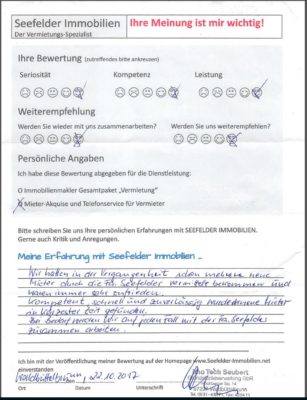 Seefelder Immobilien
Der Vermietungs-Spezialist
Ihre Meinung ist mir wichtig!
Ihre Bewertung (zutreffendes bitte ankreuzen)
Seriosität Kompetenz Leistung
Weiterempfehlung
Werden Sie wieder mit uns zusammenarbeiten? Werden Sie uns weiterempfehlen?
Persönliche Angaben
Ich habe diese Bewertung abgegeben für die Dienstleistung:
O Immobilienmakler Gesamtpaket „Vermietung"
Mieter-Akquise und Telefonservice für Vermieter
Bitte schreiben Sie uns Ihre persönlichen Erfahrungen mit SEEFELDER IMMOBILIEN.
Gerne auch Kritik und Anregungen.
Meine Erfahrung mit Seefelder Immobilien ...
Wir hatten in der Vergangenheit schon mehrere neue
Mieter durch die Fa. Seefelder vermittelt bekommen und
waren immer sehr zufrieden.
Kompetent, schnell und zuverlässig wurden neue Mieter
in kürzester Zeit gefunden.
Bei Bedarf werden wir auf jeden Fall mit der Fa. Seefelder
zusammen arbeiten.
Ich bin mit der Veröffentlichung meiner Bewertung auf der Homepage www.Seefelder-Immobilien.net
einverstanden
22.10.2017
Seubert
Ort Datum Unterschrift